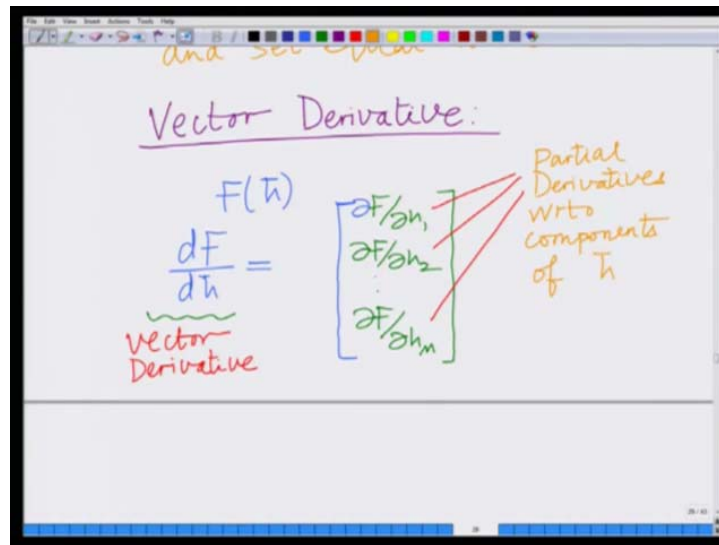 File Edit View Insert Actions Tools Help
and set equal
Vector Derivative:
F(h̄)
dF/dh̄ = [∂F/∂h₁
∂F/∂h₂
⋮
∂F/∂hₘ]
vector
Derivative
Partial
Derivatives
wrto
components
of h̄